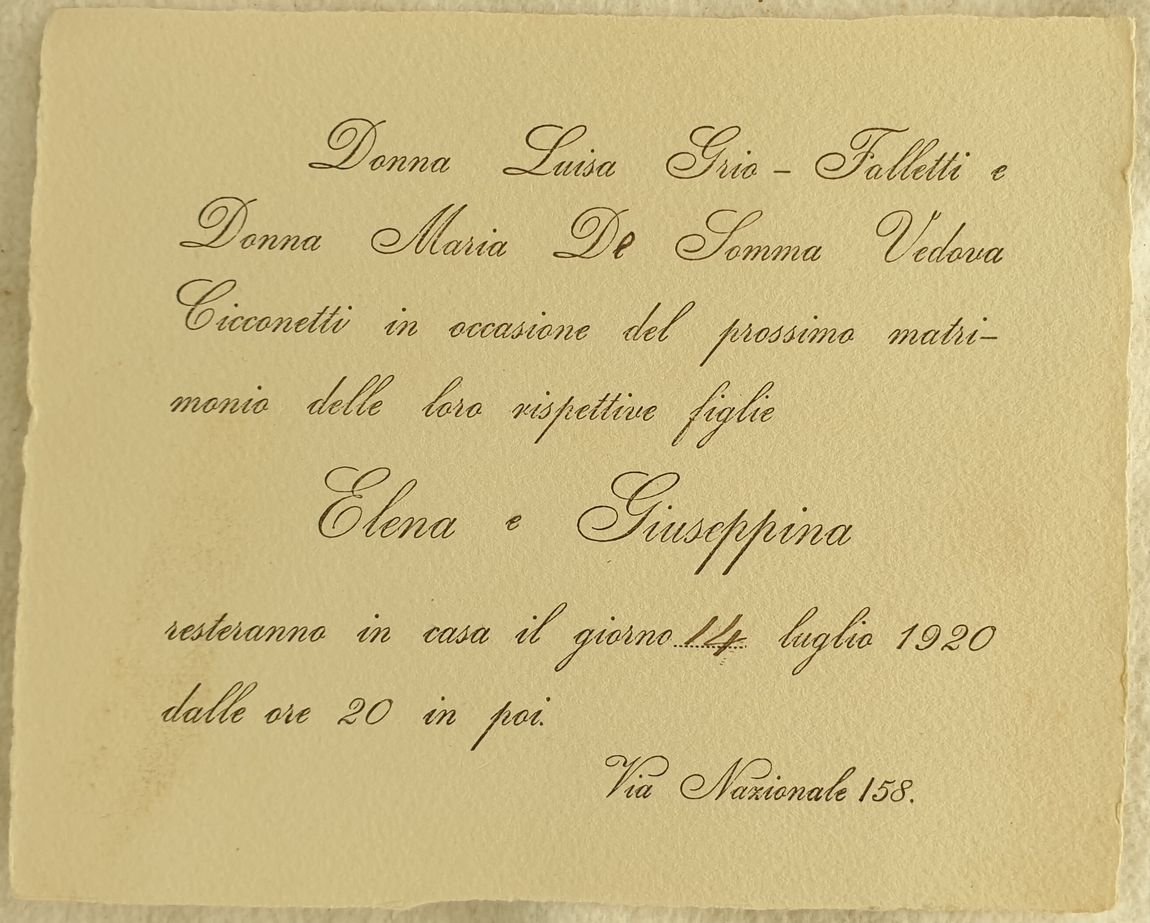 Donna Luisa Grio - Falletti e
Donna Maria De Somma Vedova
Cicconetti in occasione del prossimo matri-
monio delle loro rispettive figlie
Elena e Giuseppina
resteranno in casa il giorno 14 luglio 1920
dalle ore 20 in poi.
Via Nazionale 158.